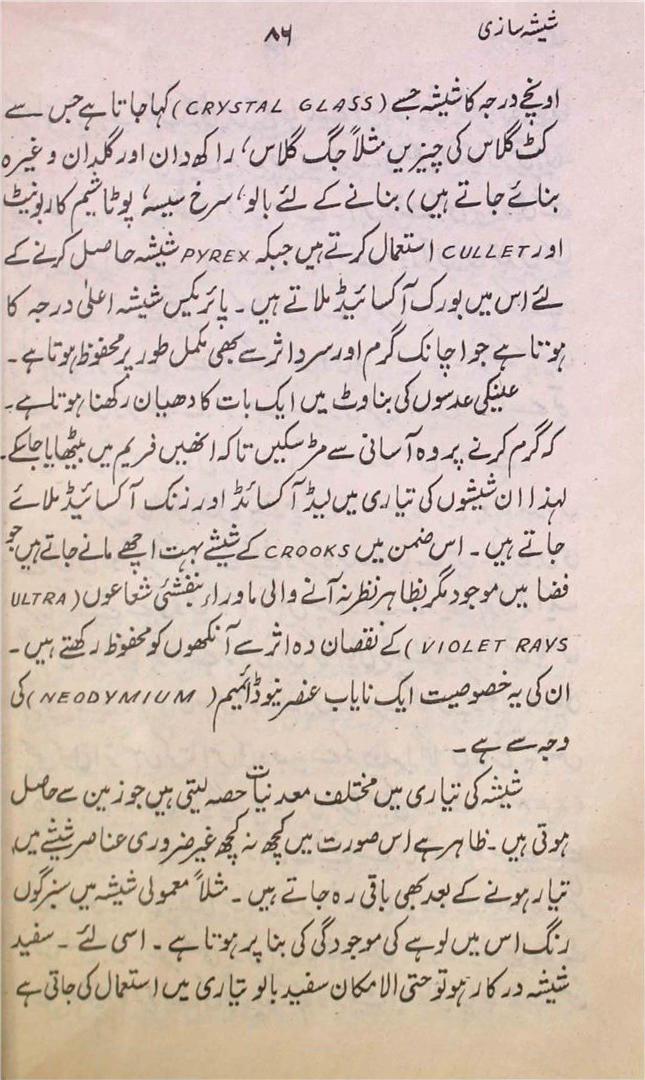 شیشہ سازی
۸۶
اونچے درجہ کا شیشہ جسے (CRYSTAL GLASS) کہا جاتا ہے جس سے
کٹ گلاس کی چیزیں مثلاً جگ گلاس، راکھ دان اور گلدان وغیرہ
بنائے جاتے ہیں) بنانے کے لئے بالو، سرخ سیسہ، پوٹاشیم کاربونیٹ
اور CULLET استعمال کرتے ہیں جبکہ PYREX شیشہ حاصل کرنے کے
لئے اس میں بورک آکسائیڈ ملاتے ہیں ۔ پائریکس شیشہ اعلیٰ درجہ کا
ہوتا ہے جو اچانک گرم اور سرد اثر سے بھی مکمل طور پر محفوظ ہوتا ہے ۔
عینکی عدسوں کی بناوٹ میں ایک بات کا دھیان رکھنا ہوتا ہے ۔
کہ گرم کرنے پر وہ آسانی سے مڑ سکیں تاکہ انھیں فریم میں بیٹھایا جاسکے ۔
لہذا ان شیشوں کی تیاری میں لیڈ آکسائڈ اور زنک آکسائیڈ ملائے
جاتے ہیں ۔ اس ضمن میں CROOKS کے شیشے بہت اچھے مانے جاتے ہیں جو
فضا میں موجود مگر بظاہر نظر نہ آنے والی ماوراء بنفشئی شعاعوں (ULTRA
VIOLET RAYS) کے نقصان دہ اثر سے آنکھوں کو محفوظ رکھتے ہیں ۔
ان کی یہ خصوصیت ایک نایاب عنصر نیوڈائمیم (NEODYMIUM) کی
وجہ سے ہے ۔
شیشہ کی تیاری میں مختلف معدنیات حصہ لیتی ہیں جو زمین سے حاصل
ہوتی ہیں ۔ ظاہر ہے اس صورت میں کچھ نہ کچھ غیر ضروری عناصر شیشے میں
تیار ہونے کے بعد بھی باقی رہ جاتے ہیں ۔ مثلاً معمولی شیشہ میں سبز گوں
رنگ اس میں لوہے کی موجودگی کی بنا پر ہوتا ہے ۔ اسی لئے ۔ سفید
شیشہ درکار ہو تو حتی الامکان سفید بالو تیاری میں استعمال کی جاتی ہے